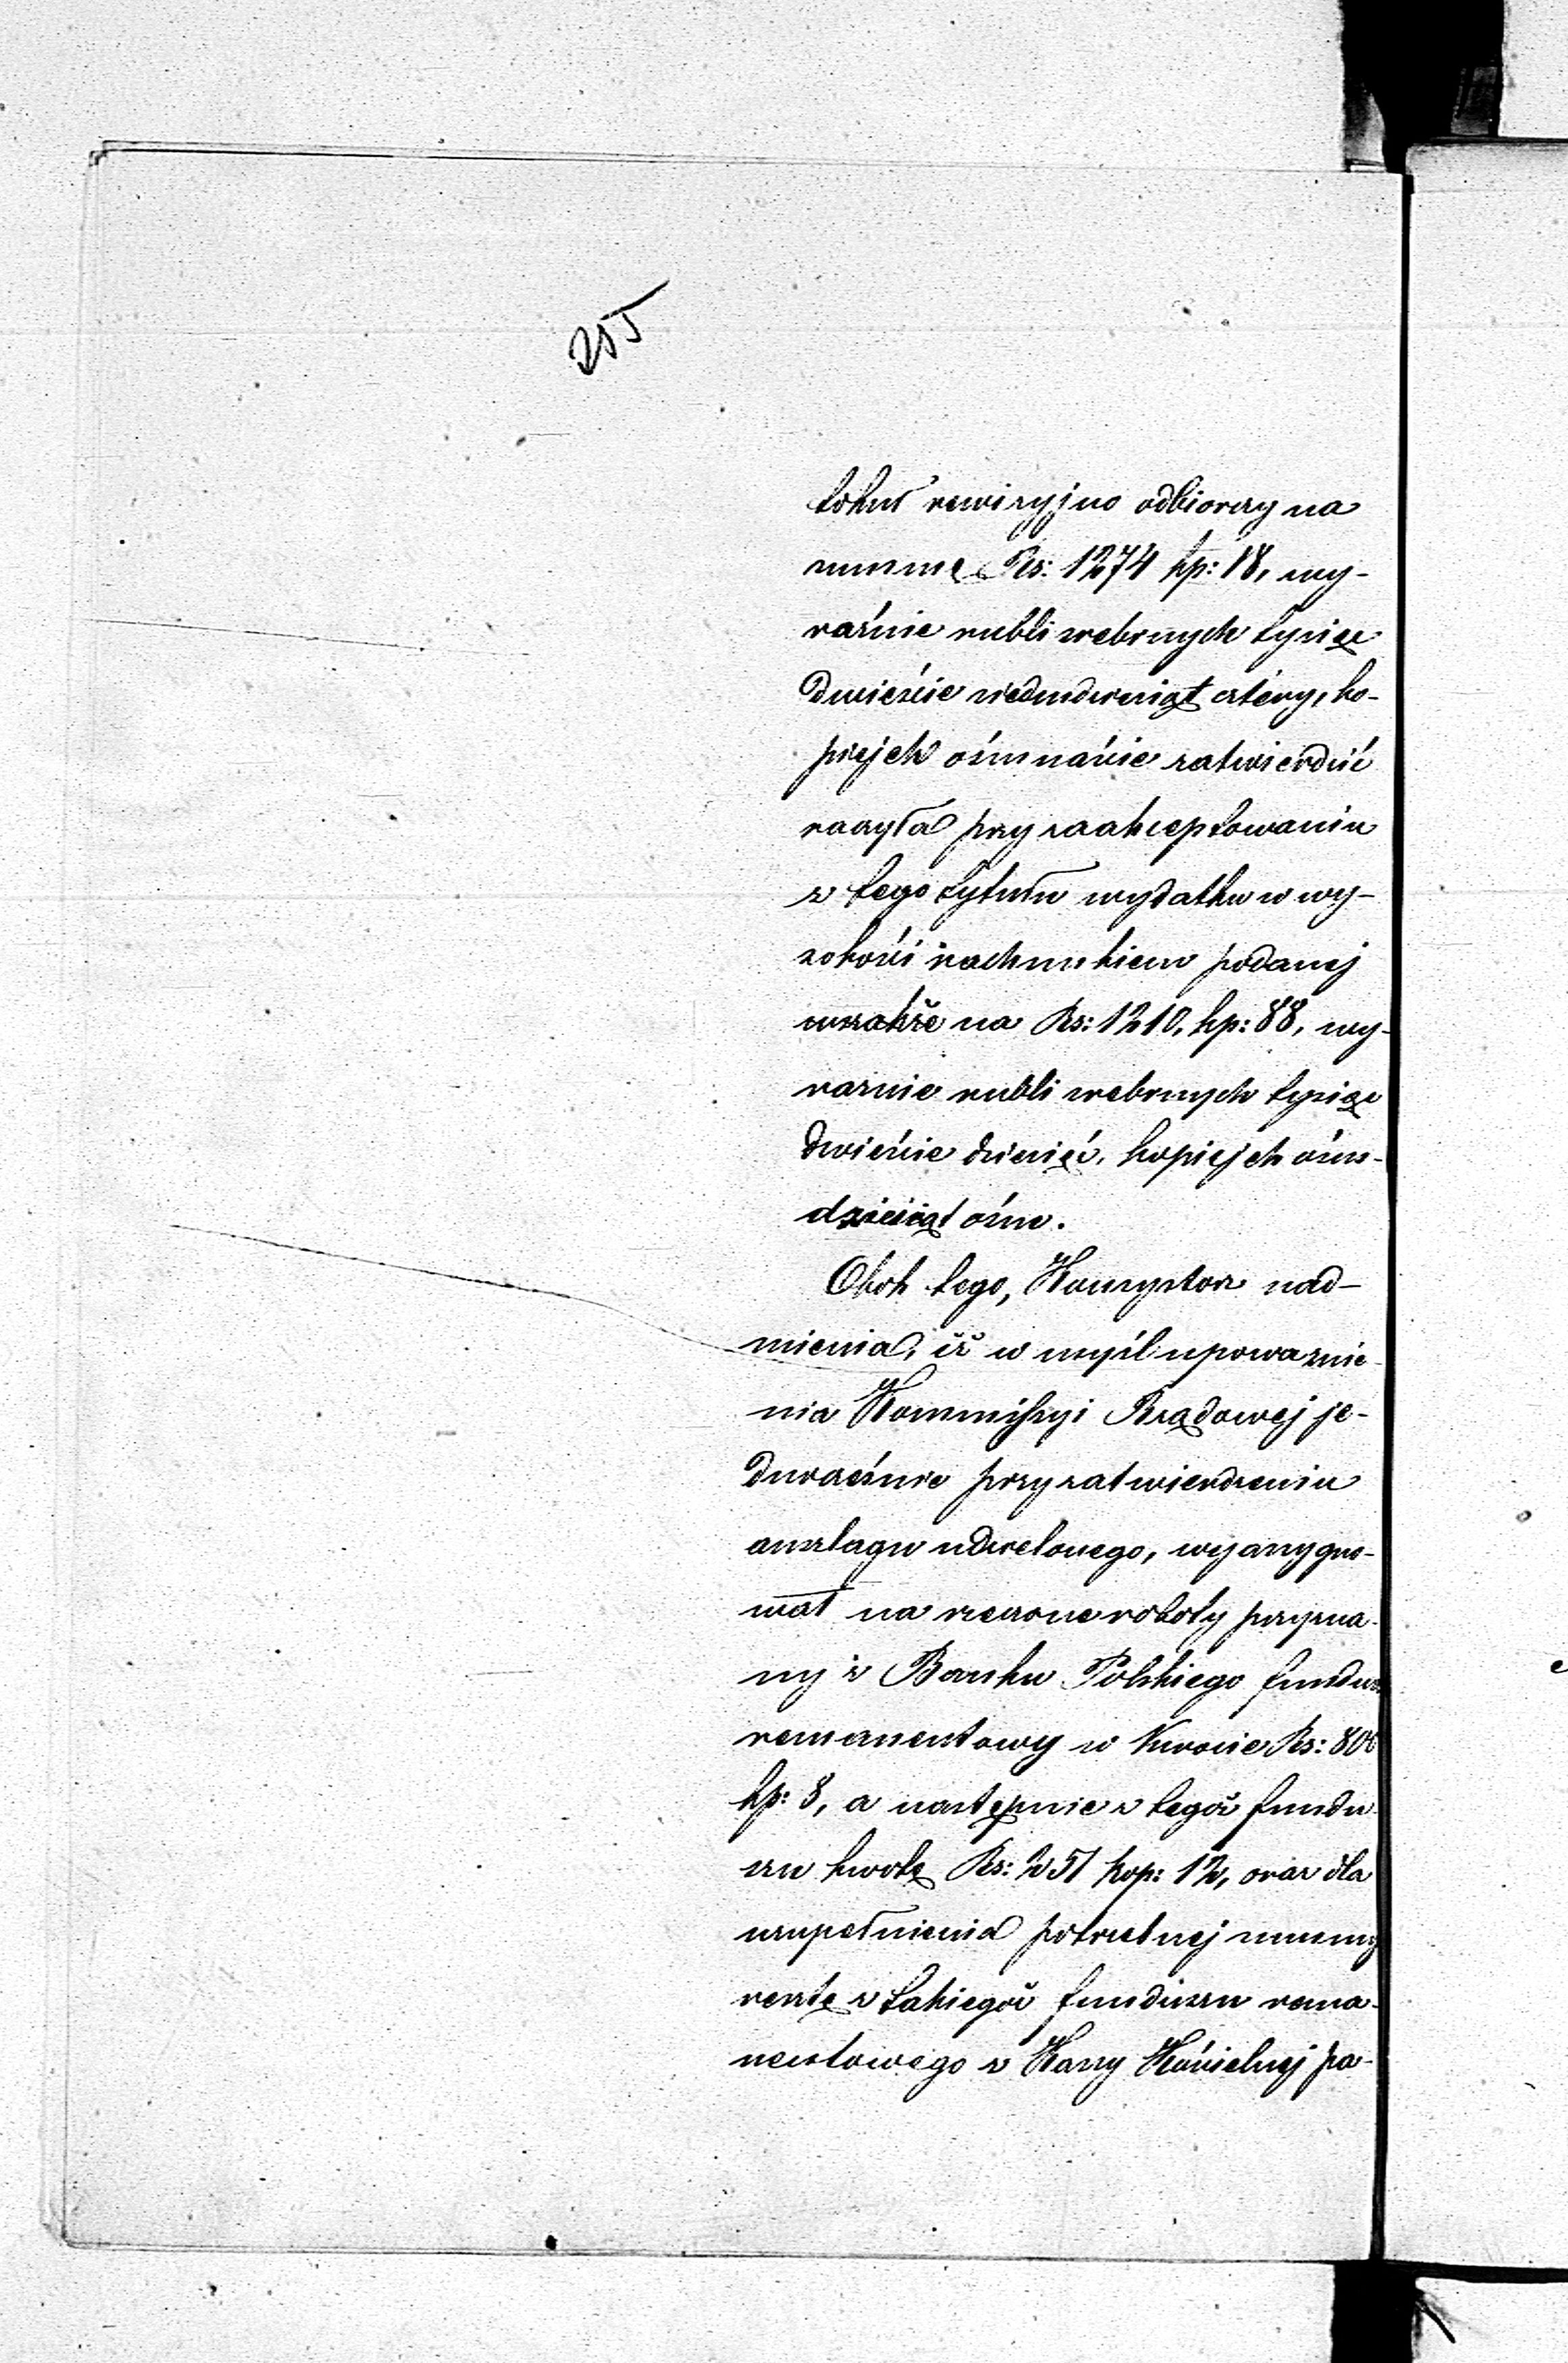 255
tokuł rewizyjno odbiorczy na
summę Rs: 1274 kp: 18, wy-
raźnie rubli srebrnych tysiąc
dwieście siedmdziesiąt cztéry, ko-
piejek ośmnaście zatwierdzić
raczyła przy zaakceptowaniu
z tego tytułu wydatku w wy-
sokości rachunkiem podanej
wszakże na Rs: 1210, kp: 88, wy-
raznie rubli srebrnych tysiąc
dwieście dziesięć, kopiejek ośm-
dziesiąt ośm.
Obok tego, Konsystorz nad-
mienia, iż w myśl upoważnie-
nia Kommissyi Rządowej je-
dnocześnie przy zatwierdzeniu
anszlagu udzielonego, wyassygno-
wał na rzeczone roboty przyzna-
ny z Banku Polskiego fundusz
remanentowy w kwocie Rs: 800
kp: 8, a następnie z tegoż fundu-
szu kwotę Rs: 251 kop: 12, oraz dla
uzupełnienia potrzebnej summy
resztę z takiegoż funduszu rema-
nentowego z Kassy Kościelnej pa-